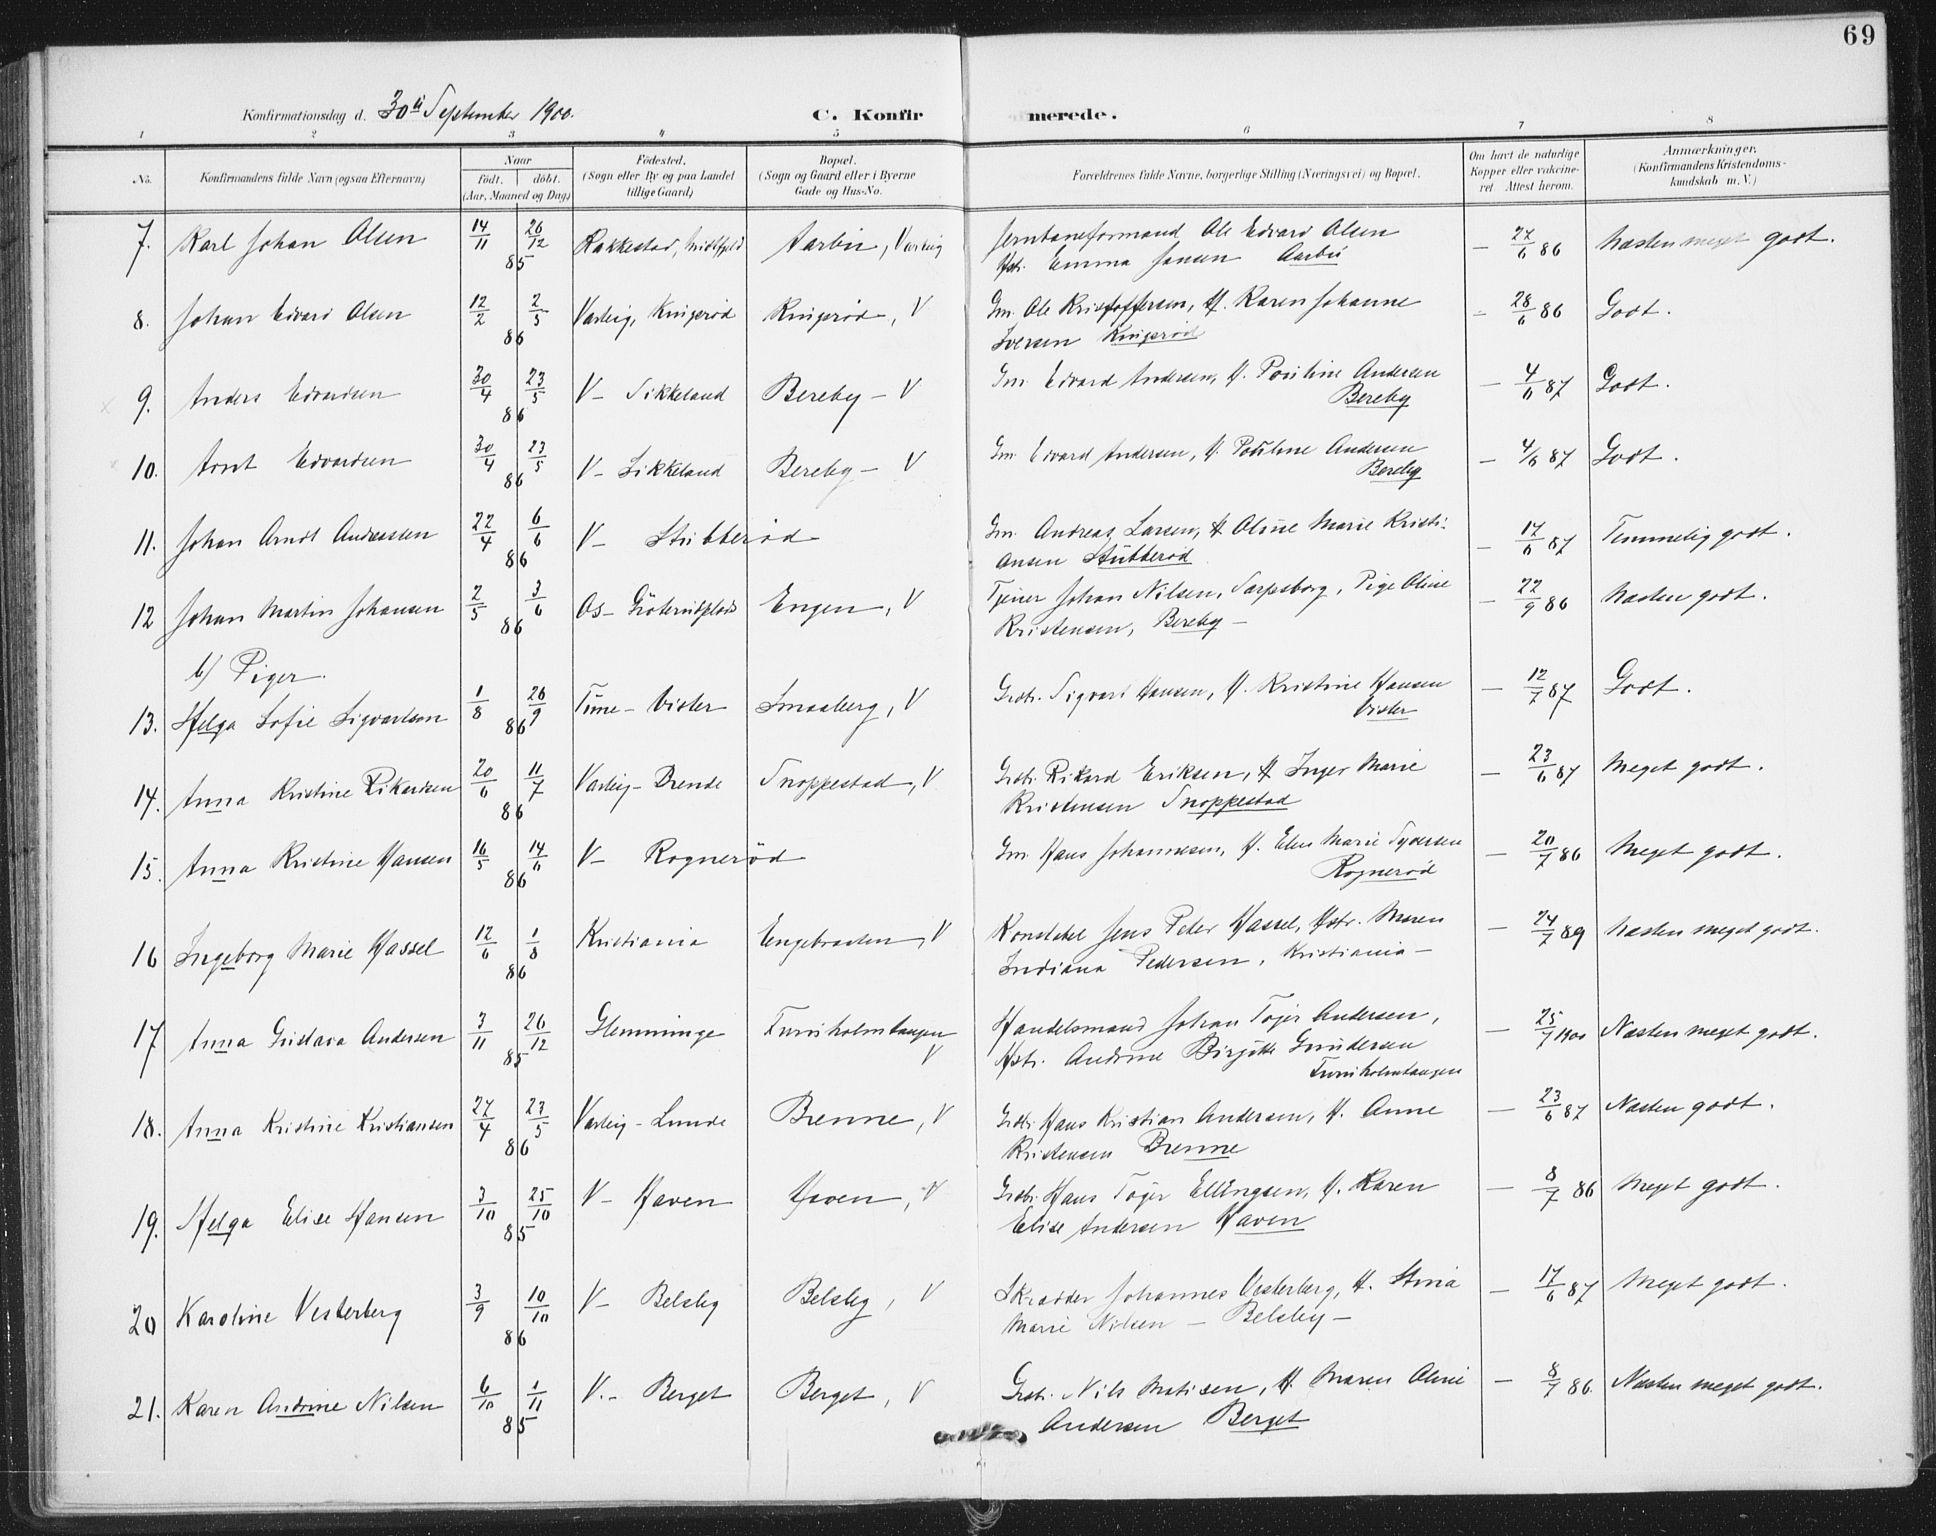 69
Konfirmationsdag d. 30te September 1900.
C. Konfirmerede.
1 2 3 4 5 6 7 8
No. Konfirmandens fulde Navn (ogsaa Efternavn)
Naar
födt. döbt.
(Aar, Maaned og Dag)
Födested.
(Sogn eller By og paa Landet
tillige Gaard)
Bopæl.
(Sogn og Gaard eller i Byerne
Gade og Hus-No.
Forældrenes fulde Navne, borgerlige Stilling (Næringsvei) og Bopæl.
Om havt de naturlige
Kopper eller vakcine-
ret Attest herom.
Anmærkninger.
(Konfirmandens Kristendoms-
kundskab m. V.)
7. Karl Johan Olsen 14/11 26/12 85 Rakkestad, Aarbu, Varteig Jernbaneformand Ole Edvard Olsen
Hstr. Emma Jansen Aarbu — 27/6 86 Næsten meget godt.
8. Johan Edvard Olsen 12/2 2/5 86 Varteig, Kingerød Kingerød, V Gm. Ole Kristoffersen, H. Karen Johanne
Iversen Kingerød — 28/6 86 Godt.
9. Anders Edvardsen 30/4 23/5 86 V — Sikkeland Bereby — V Gm. Edvard Andersen, H. Pouline Andersen
Bereby — 4/6 87 Godt.
10. Arnt Edvardsen 30/4 23/5 86 V — Sikkeland Bereby — V Gm. Edvard Andersen, H. Pouline Andersen
Bereby — 4/6 87 Godt.
11. Johan Arndt Andreassen 22/4 6/6 86 V — Stubberød Gm. Andreas Larsen, H Oline Marie Kristi-
ansen Stubberød — 17/6 87 Temmelig godt.
12 Johan Martin Johansen 2/5 3/6 86 Os — Engen, V Tjener Johan Nilsen, Sarpsborg, Pige Oline
Kristensen, Bereby — — 22/9 86 Næsten godt.
b) Piger.
13. Helga Sofie Sigvardsen 1/8 26/9 86 Tune — Vister Smaaberg, V Grdbr. Sigvard Hansen, H. Kristine Hansen
Vister — 12/7 87 Godt.
14. Anna Kristine Rikardsen 20/6 11/7 86 Varteig — Brende Snoppestad, V Grdbr. Rikard Eriksen, H Inger Marie
Kristensen Snoppestad — 23/6 87 Meget godt.
15. Anna Kristine Hansen 16/5 14/6 86 V — Rognerød Gm. Hans Johannesen, H. Elen Marie Syversen
Rognerød — 20/7 86 Meget godt.
16 Ingeborg Marie Hassel 12/6 1/8 86 Kristiania Engebraaten, V Konstabel Jens Peter Hassel, Hstr. Maren
Indiana Pedersen, Kristiania — — 24/7 89 Næsten meget godt.
17 Anna Gustava Andersen 3/11 26/12 85 Glemminge Furuholmtangen
V Handelsmand Johan Töger Andersen,
Hstr. Andrine Birgitte Gundersen
Furuholmtangen — 25/7 1900 Næsten meget godt.
18. Anna Kristine Kristiansen 27/4 23/5 86 Varteig — Lunde Brenne, V Grdbr. Hans Kristian Andersen, H. Anne
Kristensen Brenne — 23/6 87 Næsten godt.
19. Helga Elise Hansen 3/10 25/10 85 V — Haven Haven, V Grdbr. Hans Töger Ellingsen, H. Karen
Elise Andersen Haven — 8/7 86 Meget godt.
20 Karoline Vesterberg 3/9 10/10 86 V — Belsby Belsby, V Skrædder Johannes Vesterberg, H. Stina
Marie Nilsen — Belsby — — 17/6 87 Meget godt.
21. Karen Andrine Nilsen 6/10 1/11 85 V. — Berget Berget, V Grdbr. Nils Matisen, H. Maren Oline
Andersen Berget — 8/7 86. Næsten meget godt.